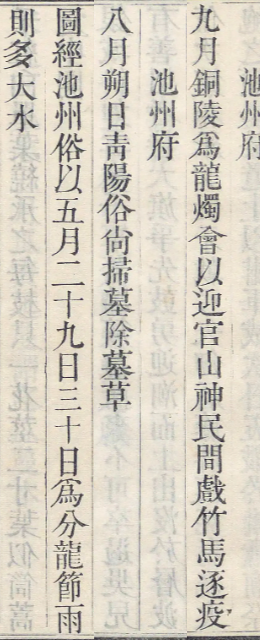 池州府
九月銅陵爲龍燭會以迎官山神民間戲竹馬逐疫
池州府
八月朔日靑陽俗尙掃墓除墓草
圖經池州俗以五月二十九日三十日爲分龍節雨
則多大水